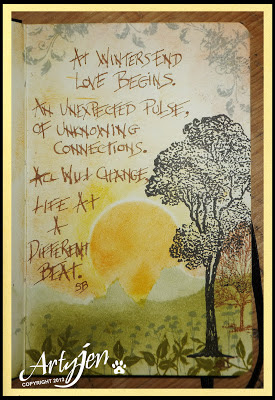 AT WINTERS END
LOVE BEGINS.
AN UNEXPECTED PULSE,
OF UNKNOWING
CONNECTIONS.
ALL WILL CHANGE
LIFE AT
A
DIFFERENT
BEAT.
SB
Artyjen
COPYRIGHT 2013